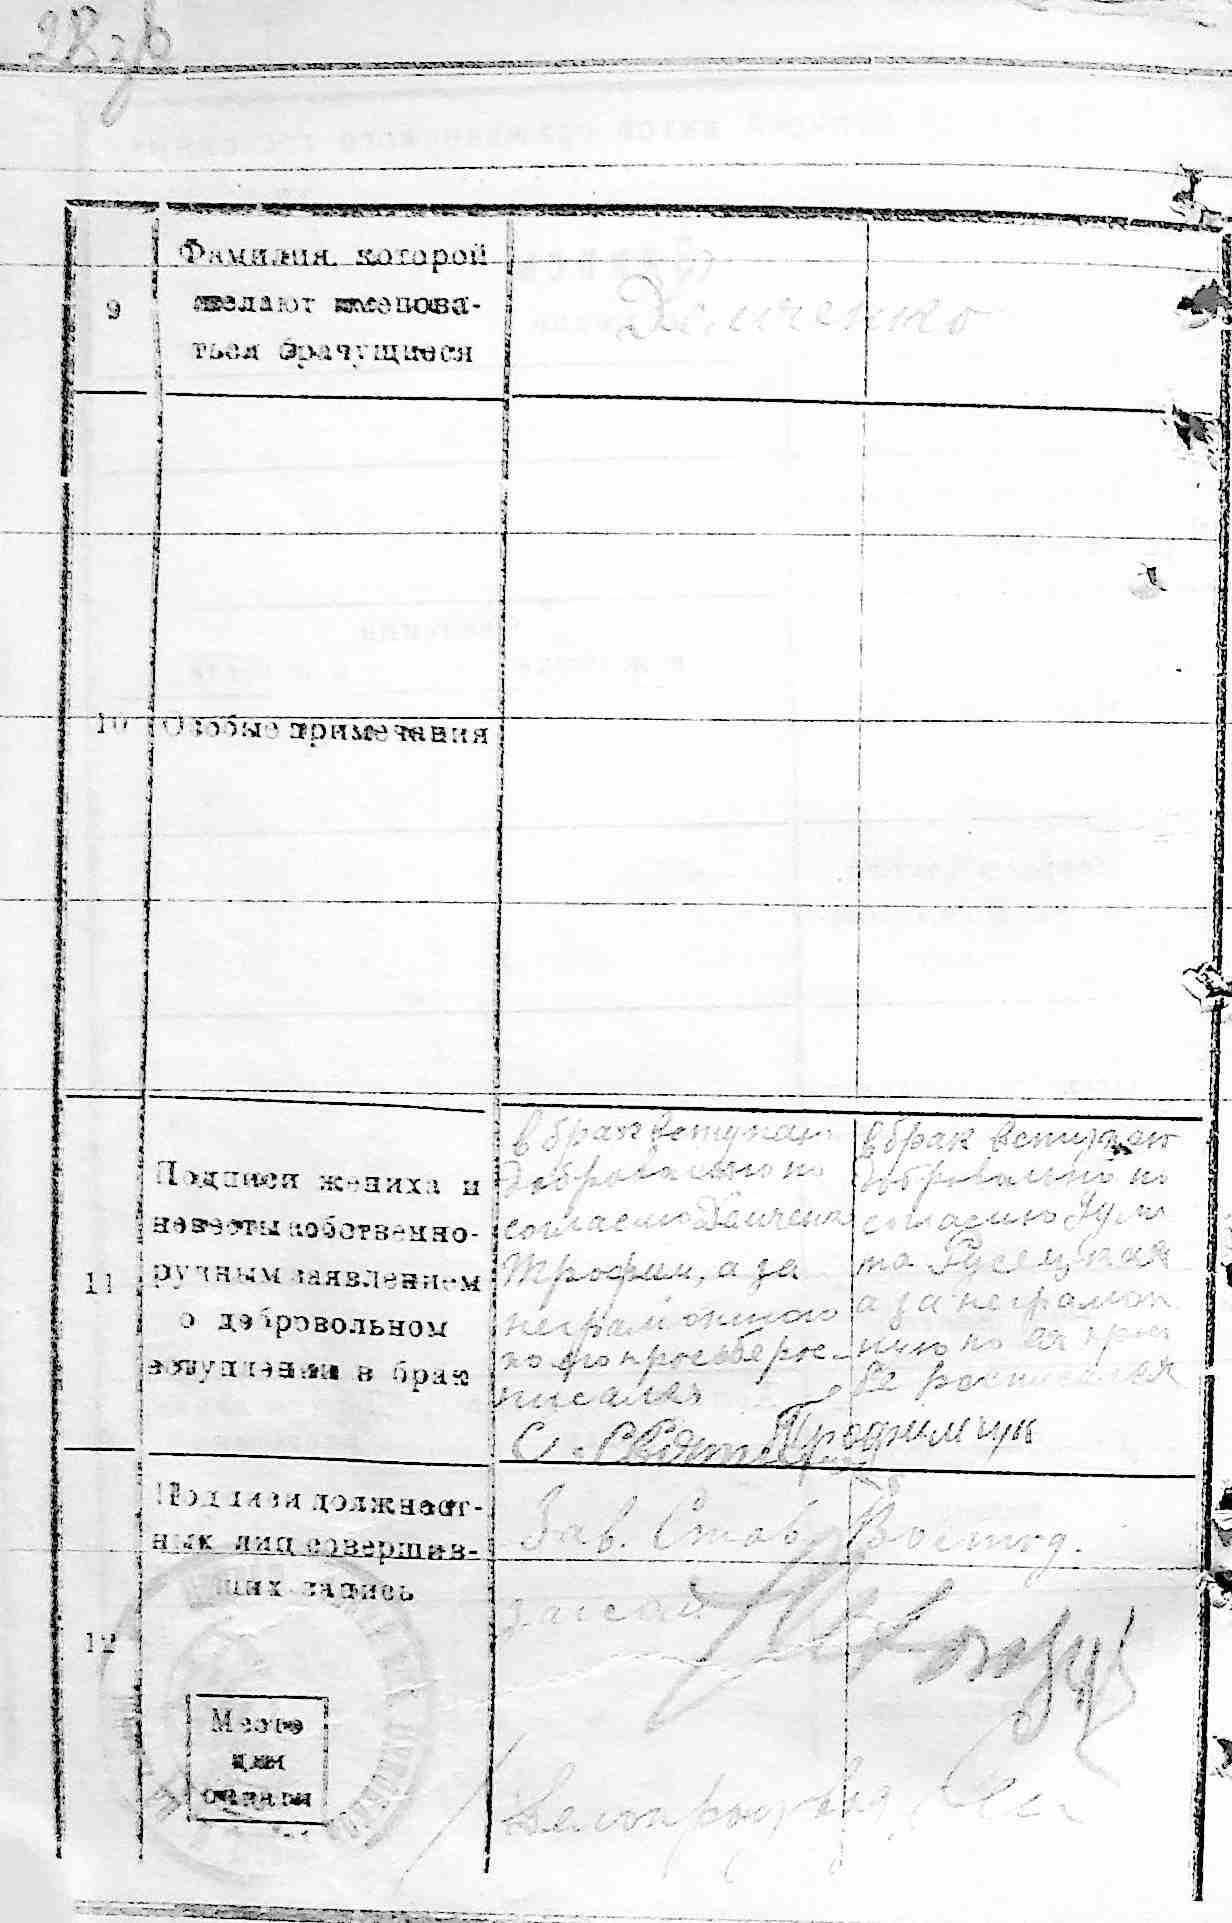 9
Фамилия, которой
желают именова-
ться брачущиеся
Демченко
10
Особые примечания
11
Подписи жениха и
невесты собственно-
ручным заявлением
о добровольном
вступлении в брак
в брак вступаю
добровольно по
согласию Демченко
Трофим, а за
неграмотного
по его просьбе рос-
писался
в брак вступаю
добровольно по
согласию
Русецкая
а за неграмот
ную по ея прос
бе росписался
Трофимчук
12
Подписи должност-
ных лиц совершив-
ших запись
Место
для
печати
Зав.
Делопроизвод